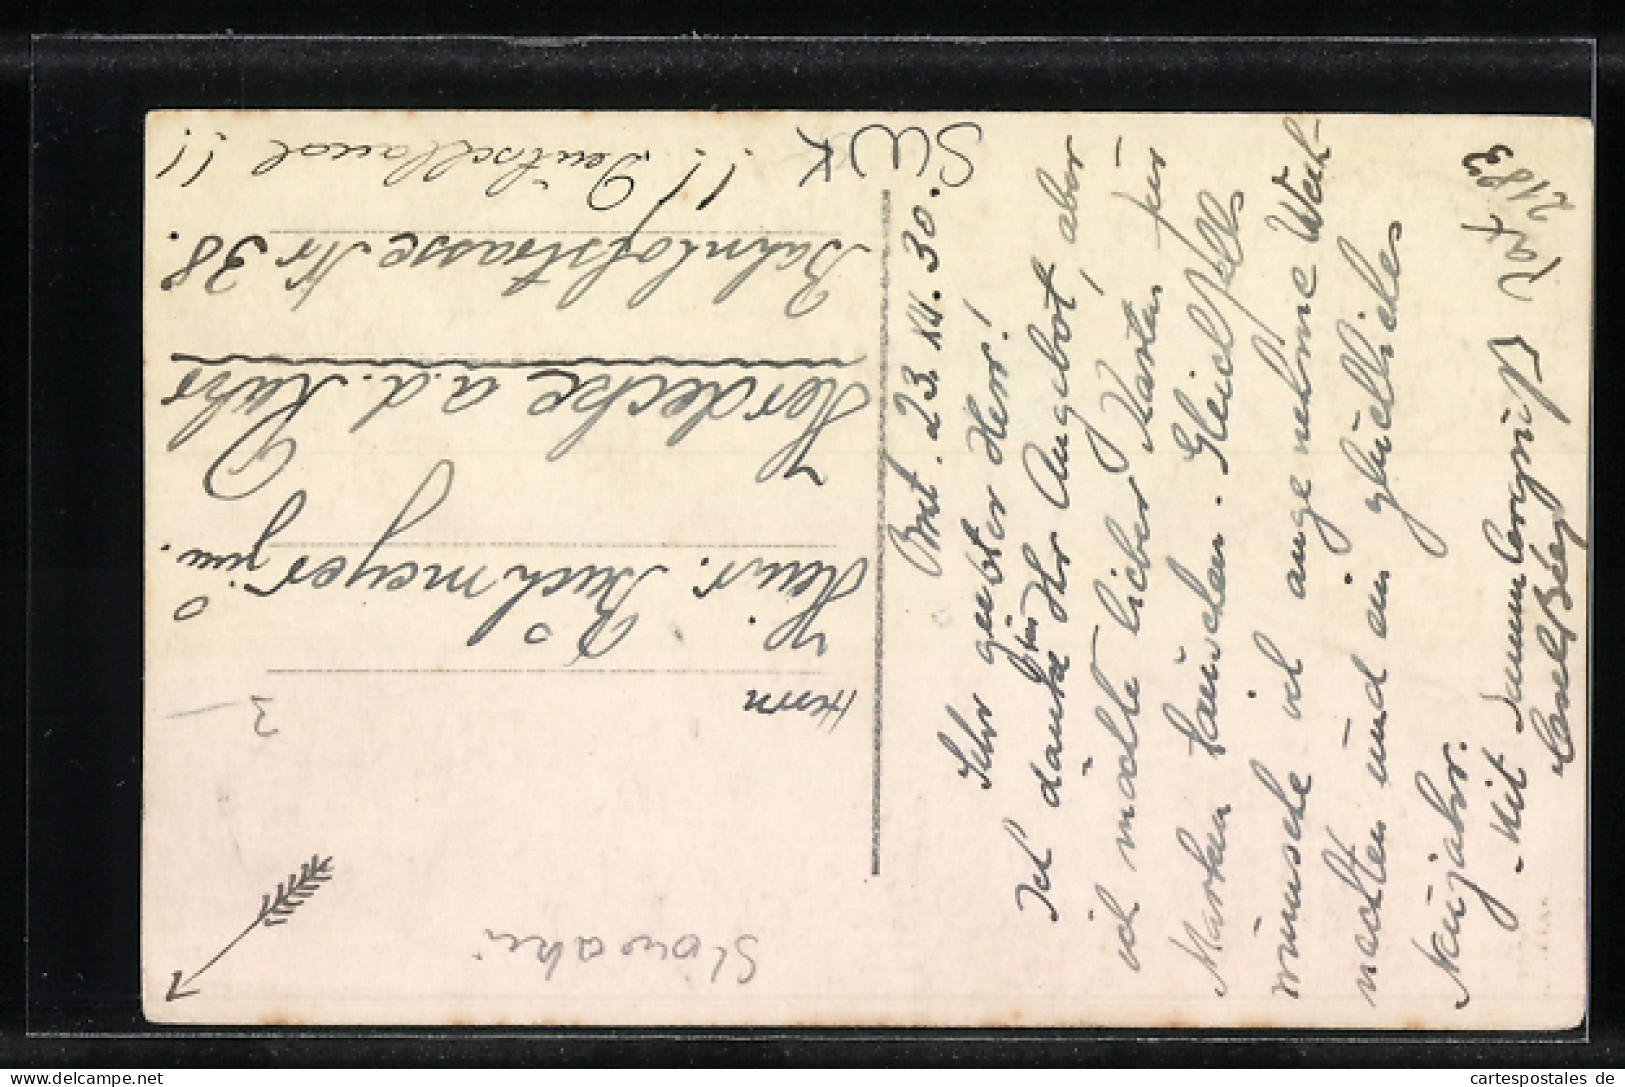 SWK
23. XII. 30.
Sehr geehter Herr!
Ich danke für Ihr Angebot, aber
ich möchte lieber Karten für
Marken tauschen. Gleichfalls
wünsche ich angenehme Weih-
nachten und ein glückliches
Neujahr.
Mit Sammlergruß
2183
Herrn
Heinr. Buchmeyer jun.
Herdecke a.d. Ruhr
Bahnhofstrasse Nr 38.
!! Deutschland !!
3
Slowakei
cartespostales de